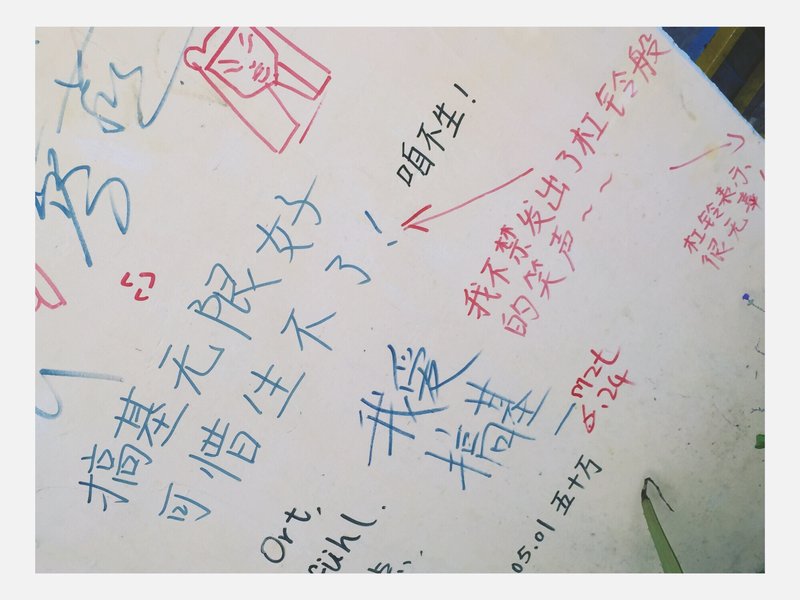 搞基无限好
可惜生不了!
咱不生!
我不禁发出了杠铃般
的笑声~~
杠铃表示
很无辜!
我爱
搞基
mzt
5.24
05.01 五十万
Ort,
fühl.